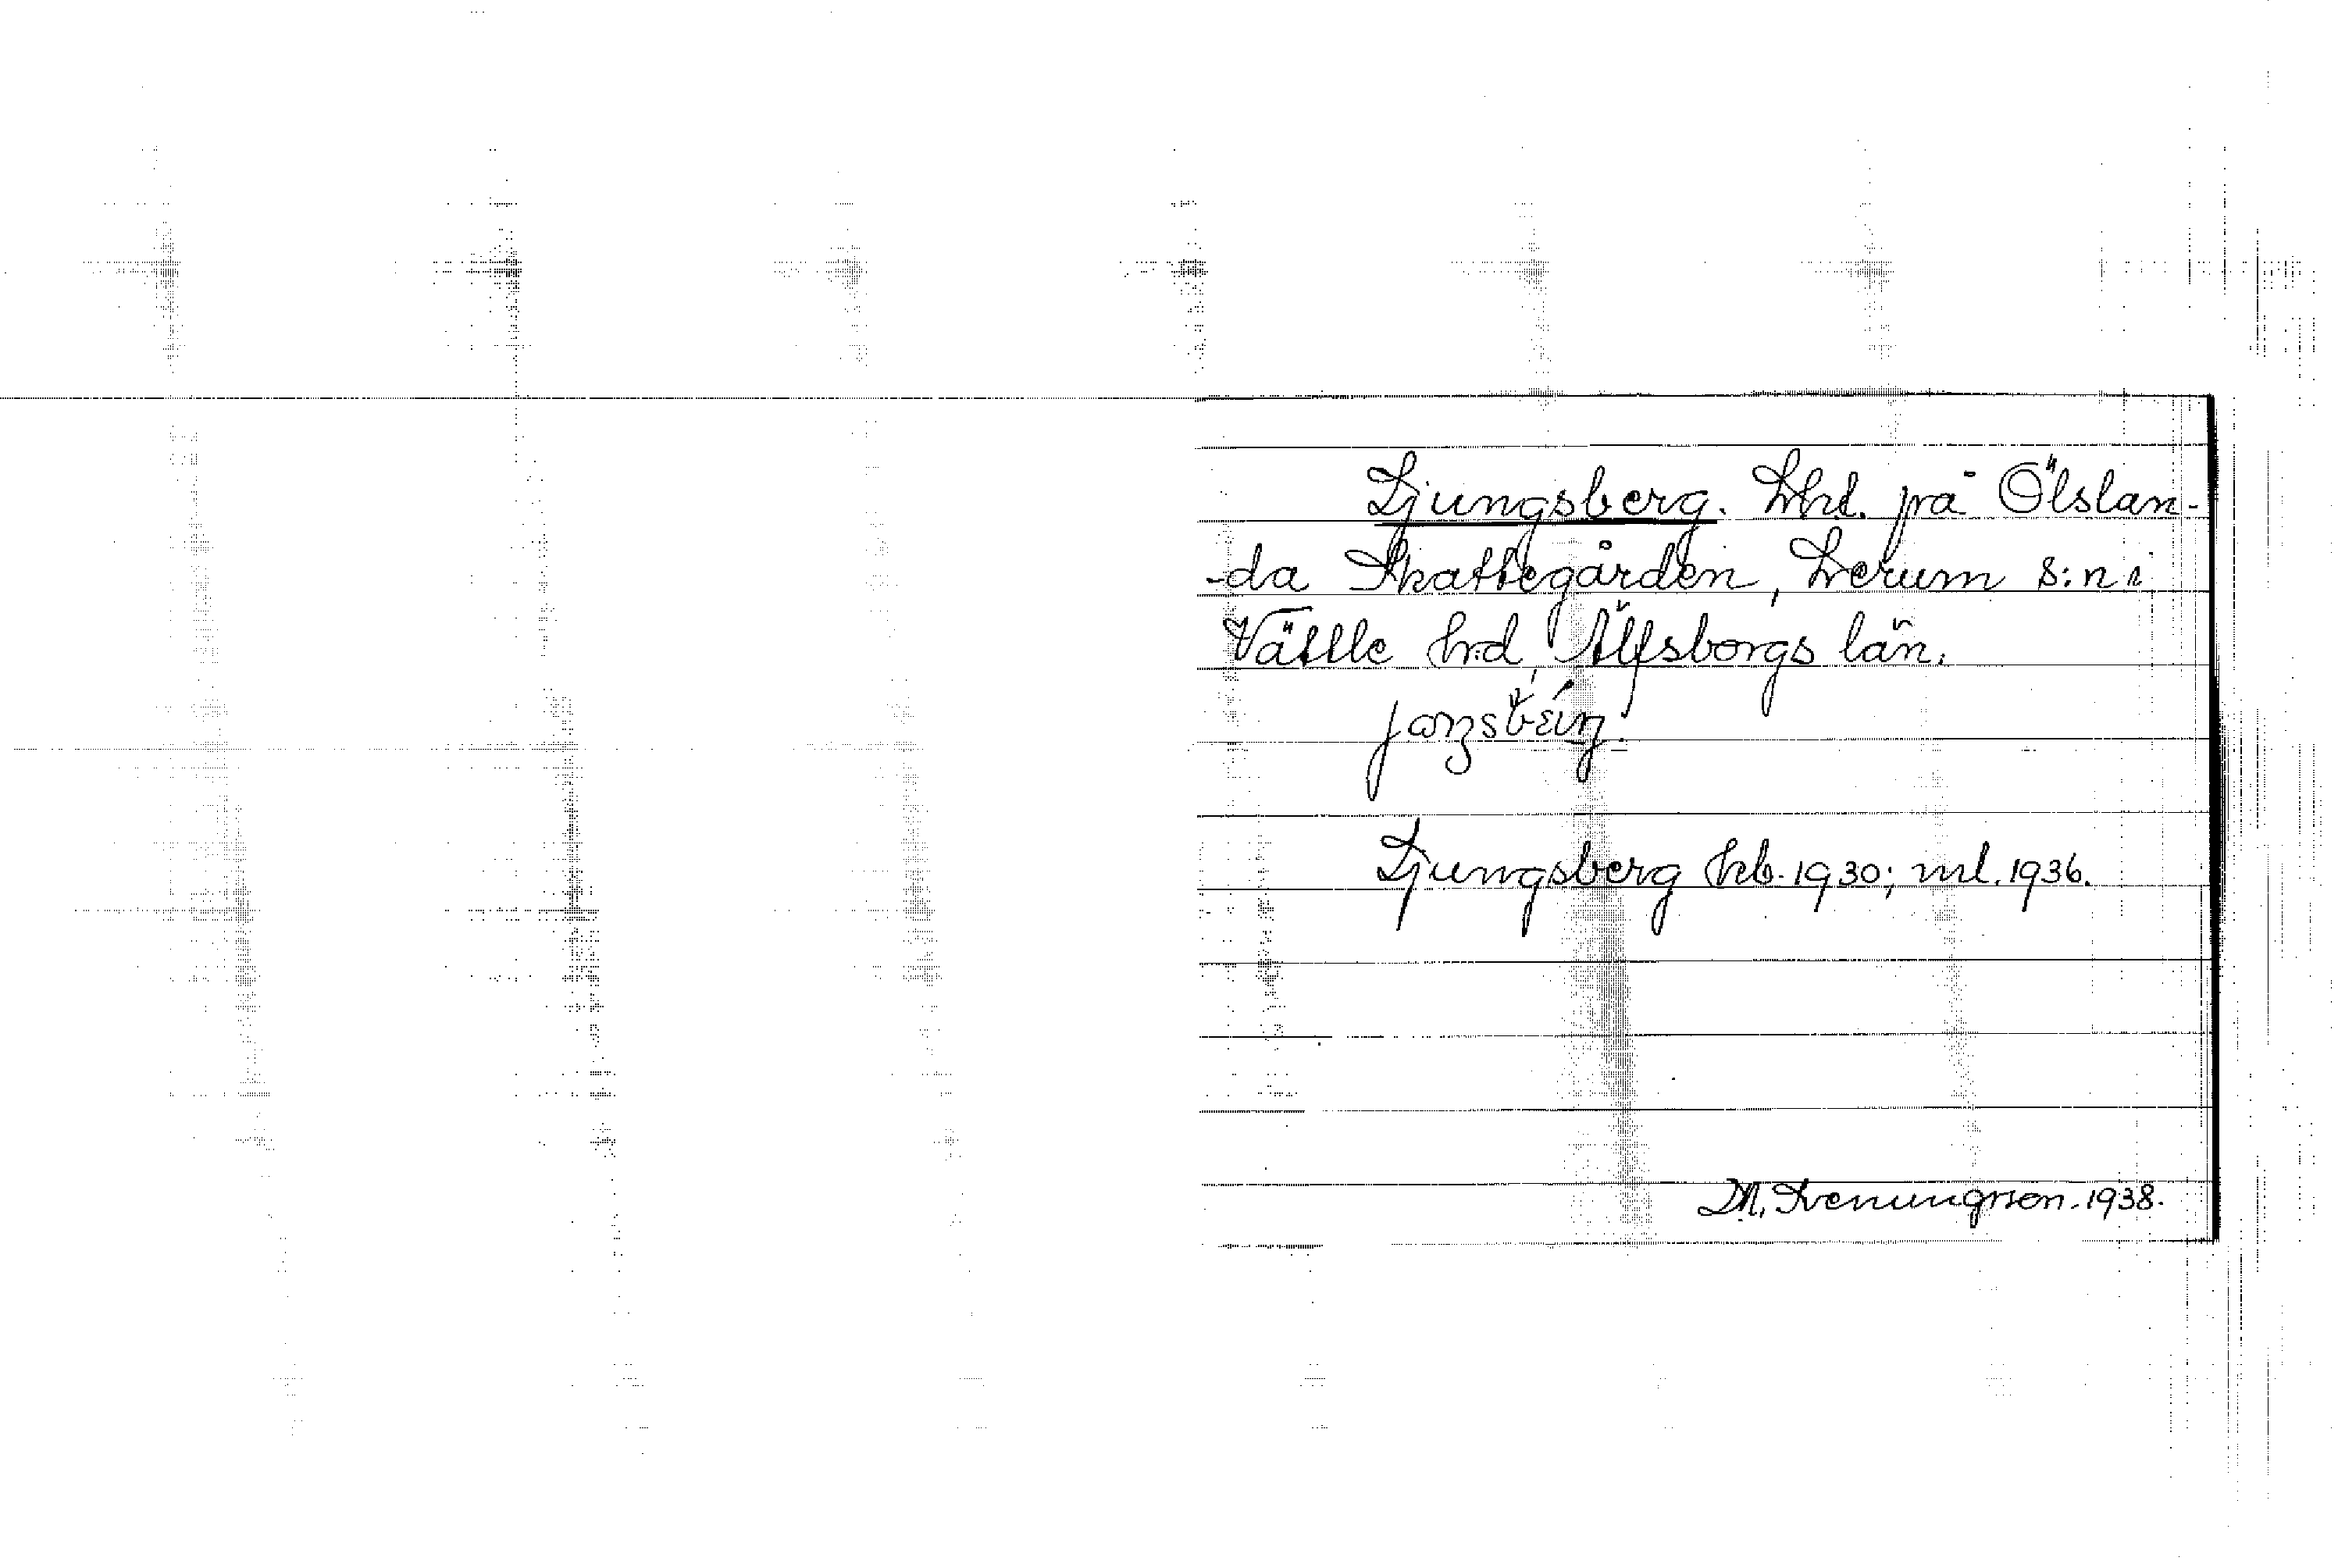 Ljungsberg. Lht. på Ölslan-
-da Skattegården, Lerum s:n i
Vättle hrd, Älfsborgs län.
Ljungsberg kb. 1930; ml. 1936.
M. Svenungson. 1938.